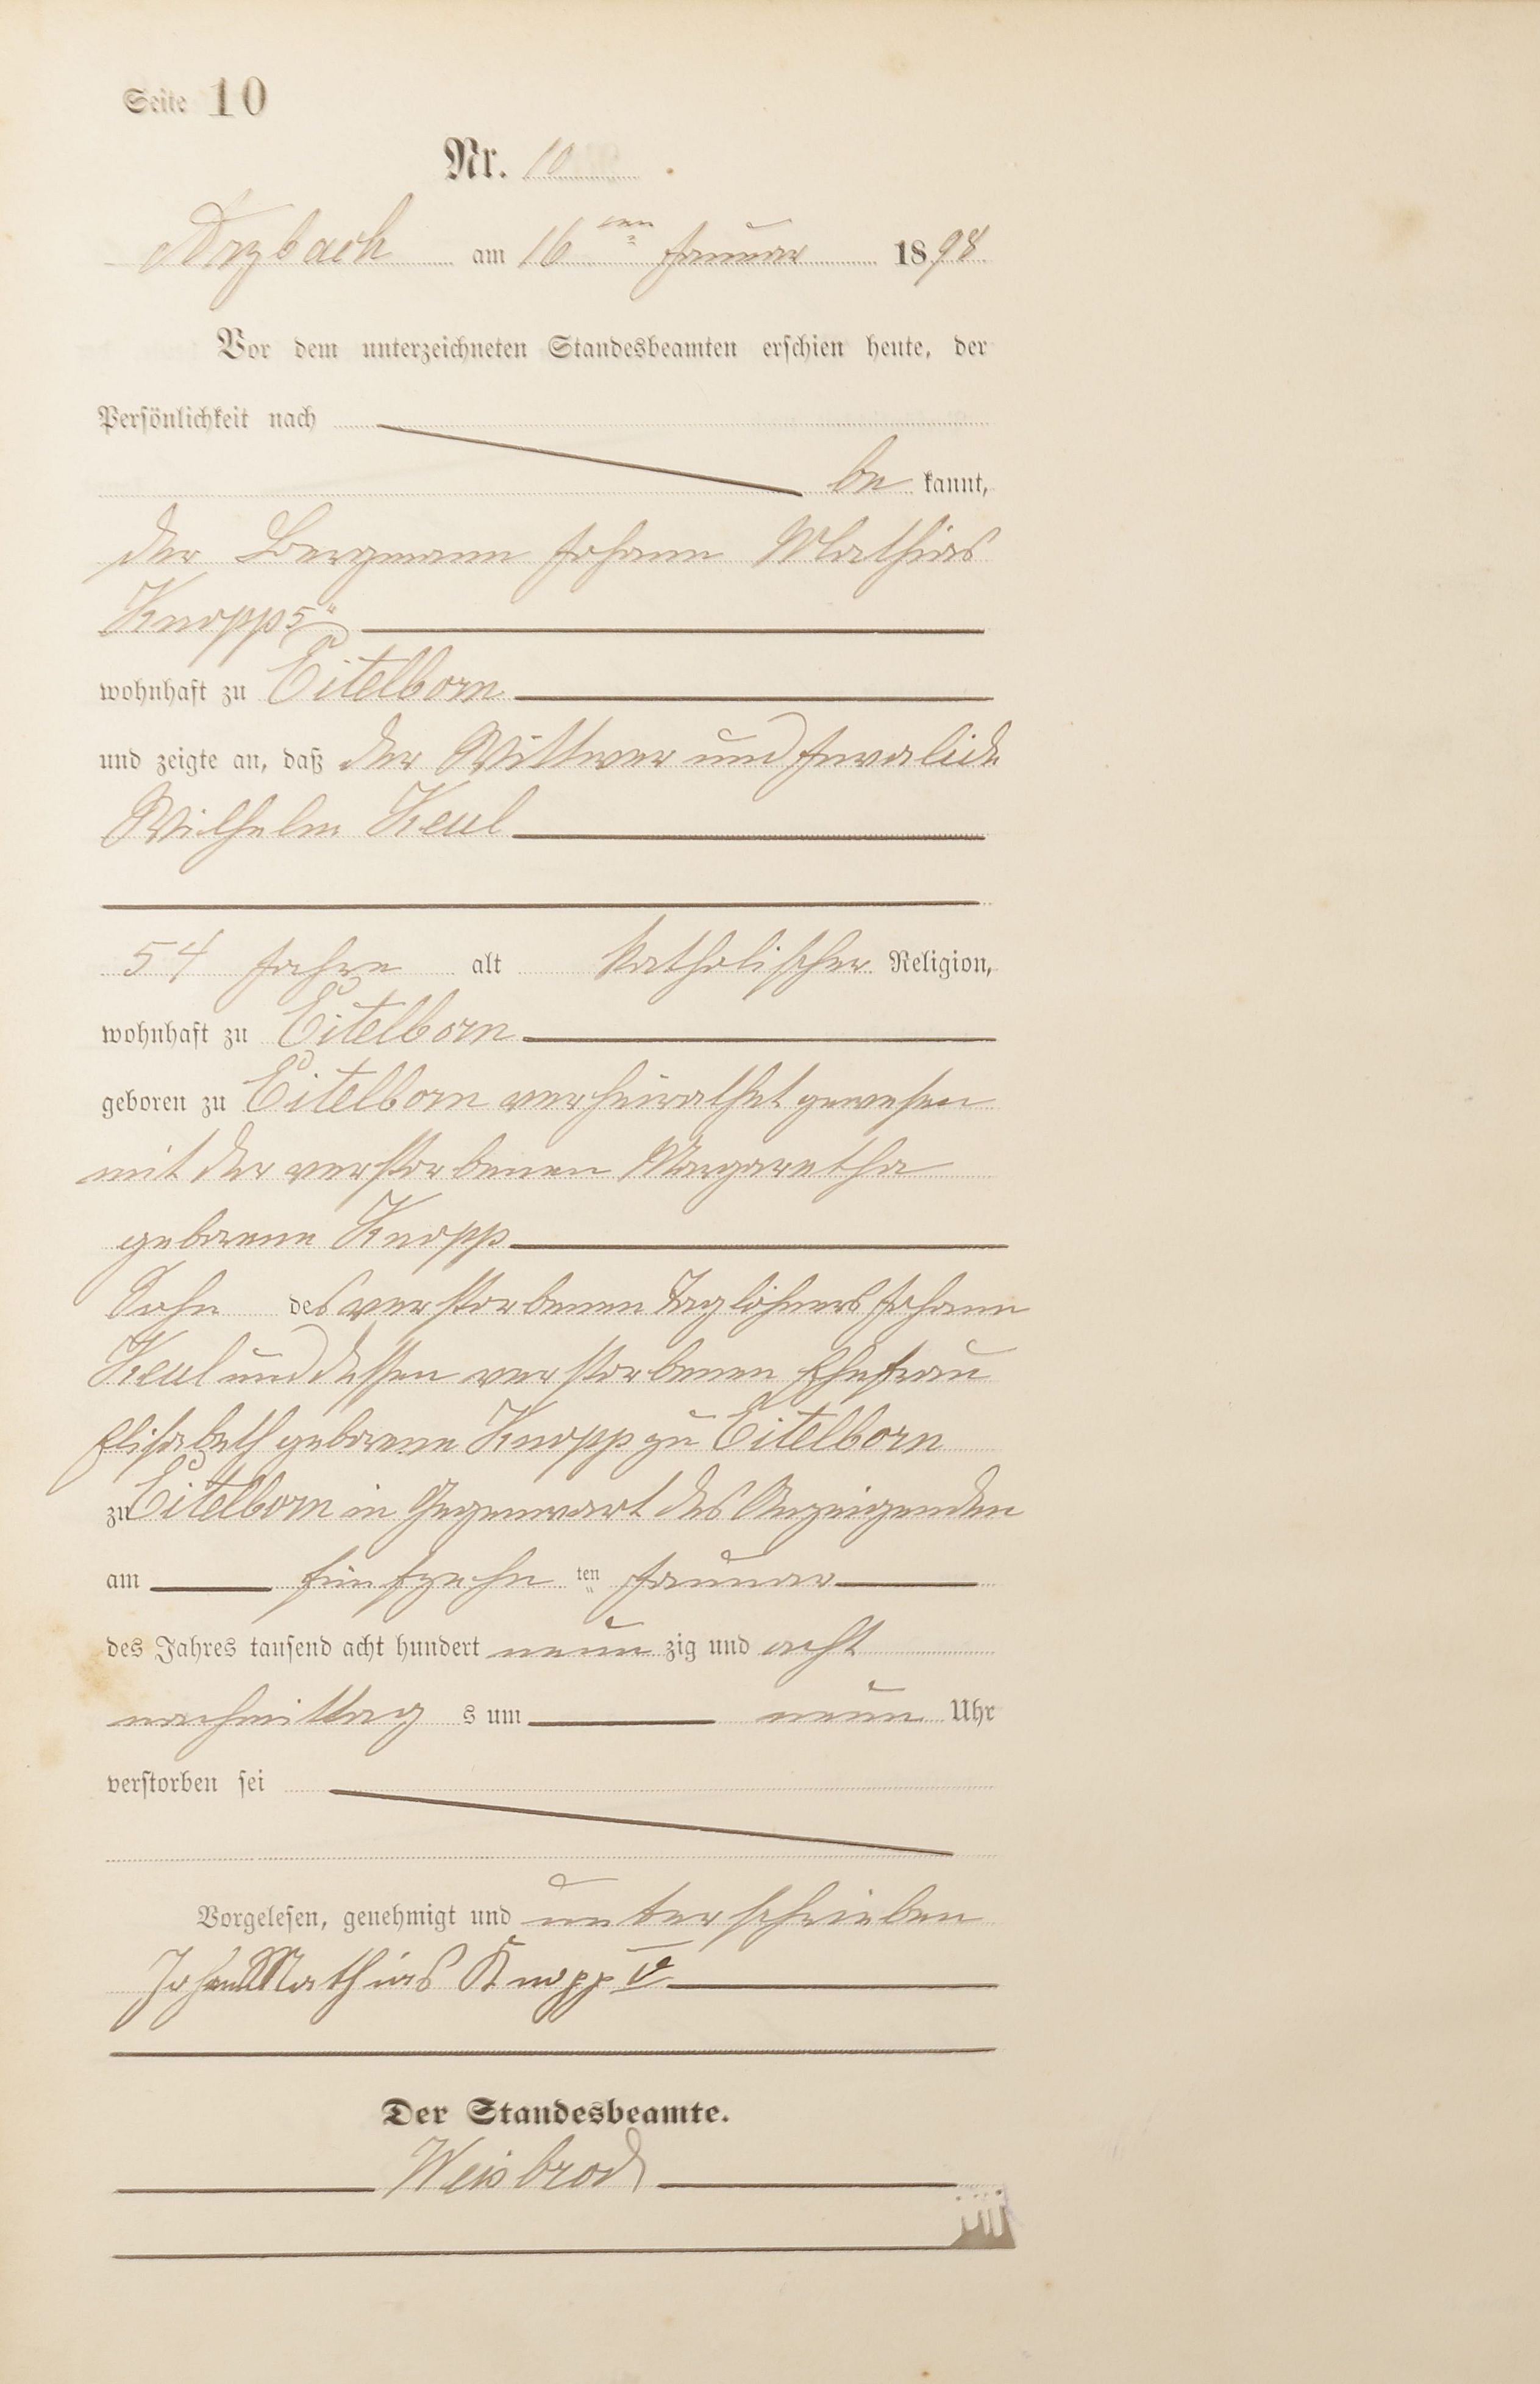 Seite 10
Nr. 10
Arzbach am 16ten Januar 1898
Vor dem unterzeichneten Standesbeamten erschien heute, der
Persönlichkeit nach
be kannt,
der Bergmann Johann Mathias
Knopp 5"
wohnhaft zu Eitelborn
und zeigte an, daß der Wittwer und Invalide
Wilhelm Keul
54 Jahre alt katholischer Religion,
wohnhaft zu Eitelborn
geboren zu Eitelborn verheirathet gewesen
mit der verstorbenen Margaretha
geborene Knopp
Sohn des verstorbenen Taglöhners Johann
Keul und dessen verstorbenen Ehefrau
Elisabeth geborene Knopp zu Eitelborn
zu Eitelborn in Gegenwart des Anzeigenden
am fünfzehn ten Januar
des Jahres tausend acht hundert neun zig und acht
nachmittag s um neun Uhr
verstorben sei
Vorgelesen, genehmigt und unterschrieben
Johann Mathias Knopp V
Der Standesbeamte.
Weisbrod